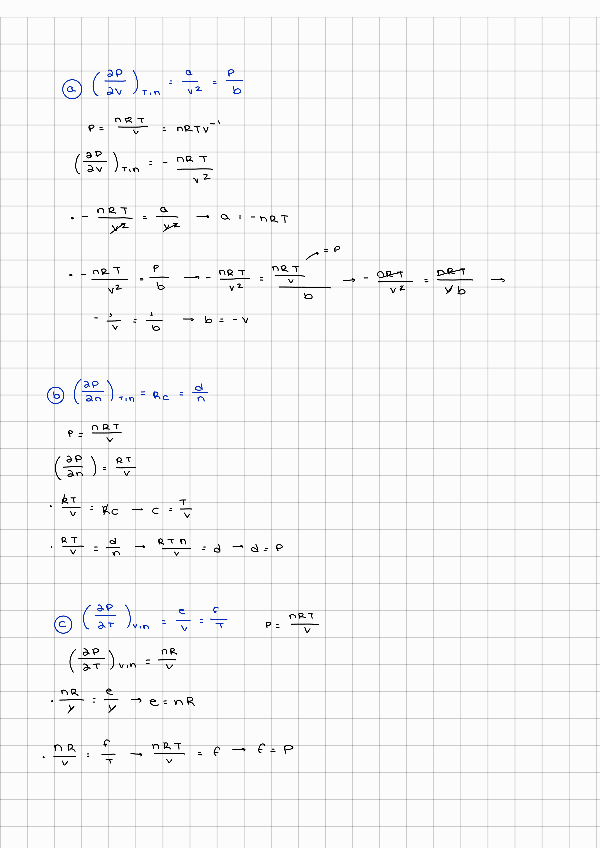 ⓐ (∂P/∂V)T,n = a/V² = P/b
P = nRT/V = nRTV⁻¹
(∂P/∂V)T,n = - nRT/V²
• - nRT/V² = a/V² → a = -nRT
• - nRT/V² = P/b → - nRT/V² = (nRT/V)/b → = P → - nRT/V² = nRT/Vb →
- 1/V = 1/b → b = -V
ⓑ (∂P/∂n)T,n = Rc = d/n
P = nRT/V
(∂P/∂n) = RT/V
• RT/V = Rc → c = T/V
• RT/V = d/n → RTn/V = d → d = P
ⓒ (∂P/∂T)V,n = e/V = f/T P = nRT/V
(∂P/∂T)V,n = nR/V
• nR/V = e/V → e = nR
• nR/V = f/T → nRT/V = f → f = P